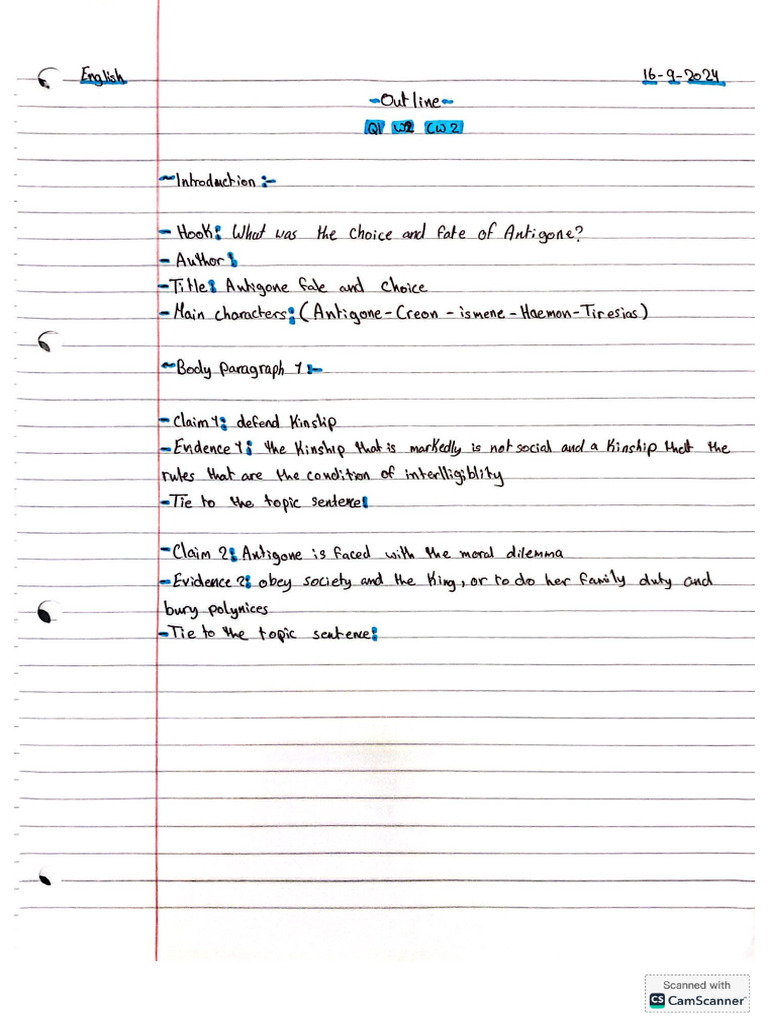 English 16-9-2024
-Outline-
Q1 W2 CW2
~Introduction:-
- Hook: What was the choice and fate of Antigone?
- Author:
- Title: Antigone fate and choice
- Main characters: (Antigone-Creon-ismene-Haemon-Tiresias)
~Body paragraph 1:-
- Claim 1: defend Kinship
- Evidence 1: the Kinship that is markedly is not social and a Kinship that the
rules that are the condition of interlligiblity
- Tie to the topic sentence:
- Claim 2: Antigone is faced with the moral dilemma
- Evidence 2: obey society and the King, or to do her family duty and
bury polynices
- Tie to the topic sentence:
Scanned with
CS CamScanner